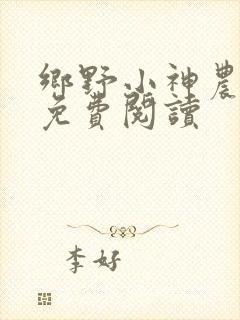 鄉野小神農
免費閱讀
李好